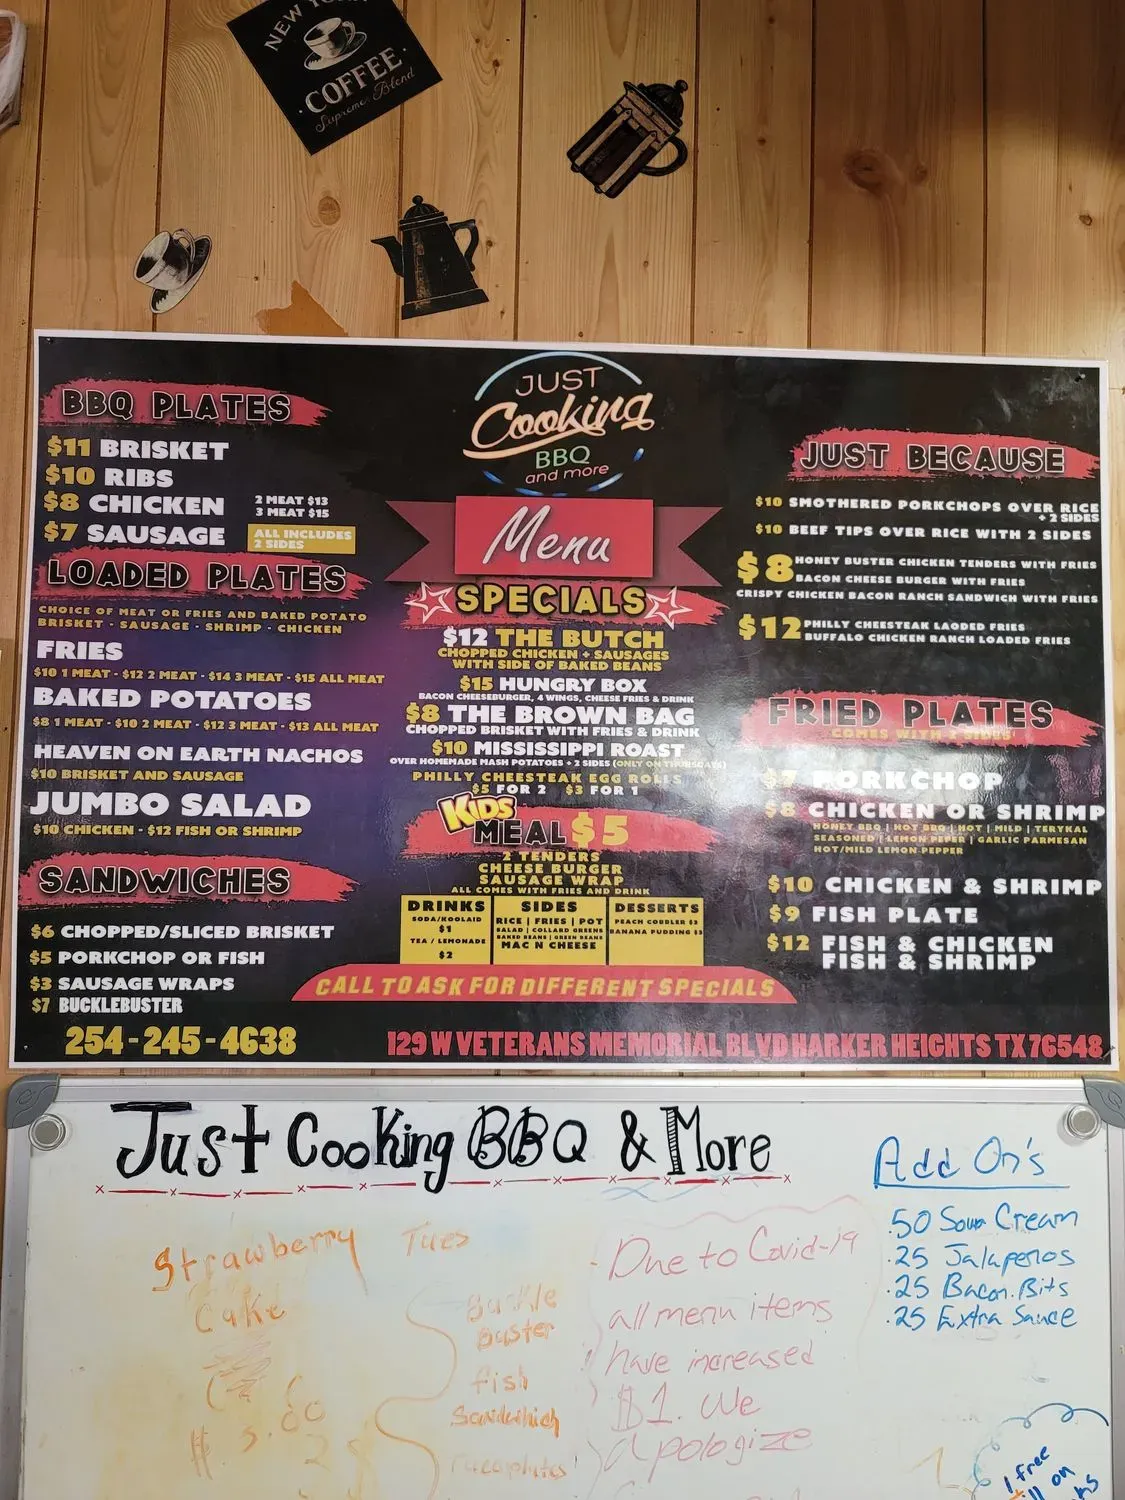 NEW YORK
COFFEE
Supreme Blend
JUST
Cooking
BBQ
and more
Menu
BBQ PLATES
$11 BRISKET
$10 RIBS
$8 CHICKEN
$7 SAUSAGE
2 MEAT $13
3 MEAT $15
ALL INCLUDES
2 SIDES
LOADED PLATES
CHOICE OF MEAT OR FRIES AND BAKED POTATO
BRISKET - SAUSAGE - SHRIMP - CHICKEN
FRIES
$10 1 MEAT - $12 2 MEAT - $14 3 MEAT - $15 ALL MEAT
BAKED POTATOES
$8 1 MEAT - $10 2 MEAT - $12 3 MEAT - $13 ALL MEAT
HEAVEN ON EARTH NACHOS
$10 BRISKET AND SAUSAGE
JUMBO SALAD
$10 CHICKEN - $12 FISH OR SHRIMP
SANDWICHES
$6 CHOPPED/SLICED BRISKET
$5 PORKCHOP OR FISH
$3 SAUSAGE WRAPS
$7 BUCKLEBUSTER
SPECIALS
$12 THE BUTCH
CHOPPED CHICKEN + SAUSAGES
WITH SIDE OF BAKED BEANS
$15 HUNGRY BOX
BACON CHEESEBURGER, 4 WINGS, CHEESE FRIES & DRINK
$8 THE BROWN BAG
CHOPPED BRISKET WITH FRIES & DRINK
$10 MISSISSIPPI ROAST
OVER HOMEMADE MASH POTATOES + 2 SIDES (ONLY ON THURSDAYS)
PHILLY CHEESTEAK EGG ROLLS
$5 FOR 2 $3 FOR 1
KIDS
MEAL $5
2 TENDERS
CHEESE BURGER
SAUSAGE WRAP
ALL COMES WITH FRIES AND DRINK
DRINKS
SODA/KOOLAID
$1
TEA / LEMONADE
$2
SIDES
RICE | FRIES | POT
SALAD | COLLARD GREENS
BAKED BEANS | GREEN BEANS
MAC N CHEESE
DESSERTS
PEACH COBBLER $3
BANANA PUDDING $3
CALL TO ASK FOR DIFFERENT SPECIALS
JUST BECAUSE
$10 SMOTHERED PORKCHOPS OVER RICE
+ 2 SIDES
$10 BEEF TIPS OVER RICE WITH 2 SIDES
$8 HONEY BUSTER CHICKEN TENDERS WITH FRIES
BACON CHEESE BURGER WITH FRIES
CRISPY CHICKEN BACON RANCH SANDWICH WITH FRIES
$12 PHILLY CHEESTEAK LAODED FRIES
BUFFALO CHICKEN RANCH LOADED FRIES
FRIED PLATES
COMES WITH 2 SIDES
$7 PORKCHOP
$8 CHICKEN OR SHRIMP
HONEY BBQ | HOT BBQ | HOT | MILD | TERYKAL
SEASONED | LEMON PEPER | GARLIC PARMESAN
HOT/MILD LEMON PEPPER
$10 CHICKEN & SHRIMP
$9 FISH PLATE
$12 FISH & CHICKEN
FISH & SHRIMP
254-245-4638
129 W VETERANS MEMORIAL BLVD HARKER HEIGHTS TX 76548
Just Cooking BBQ & More
Strawberry
Cake
Tues
Buckle
Buster
fish
Sandwhich
Due to Covid-19
all menu items
have increased
$1. We
Apologize
Add On's
.50 Sour Cream
.25 Jalapenos
.25 Bacon Bits
.25 Extra Sauce
1 free
on